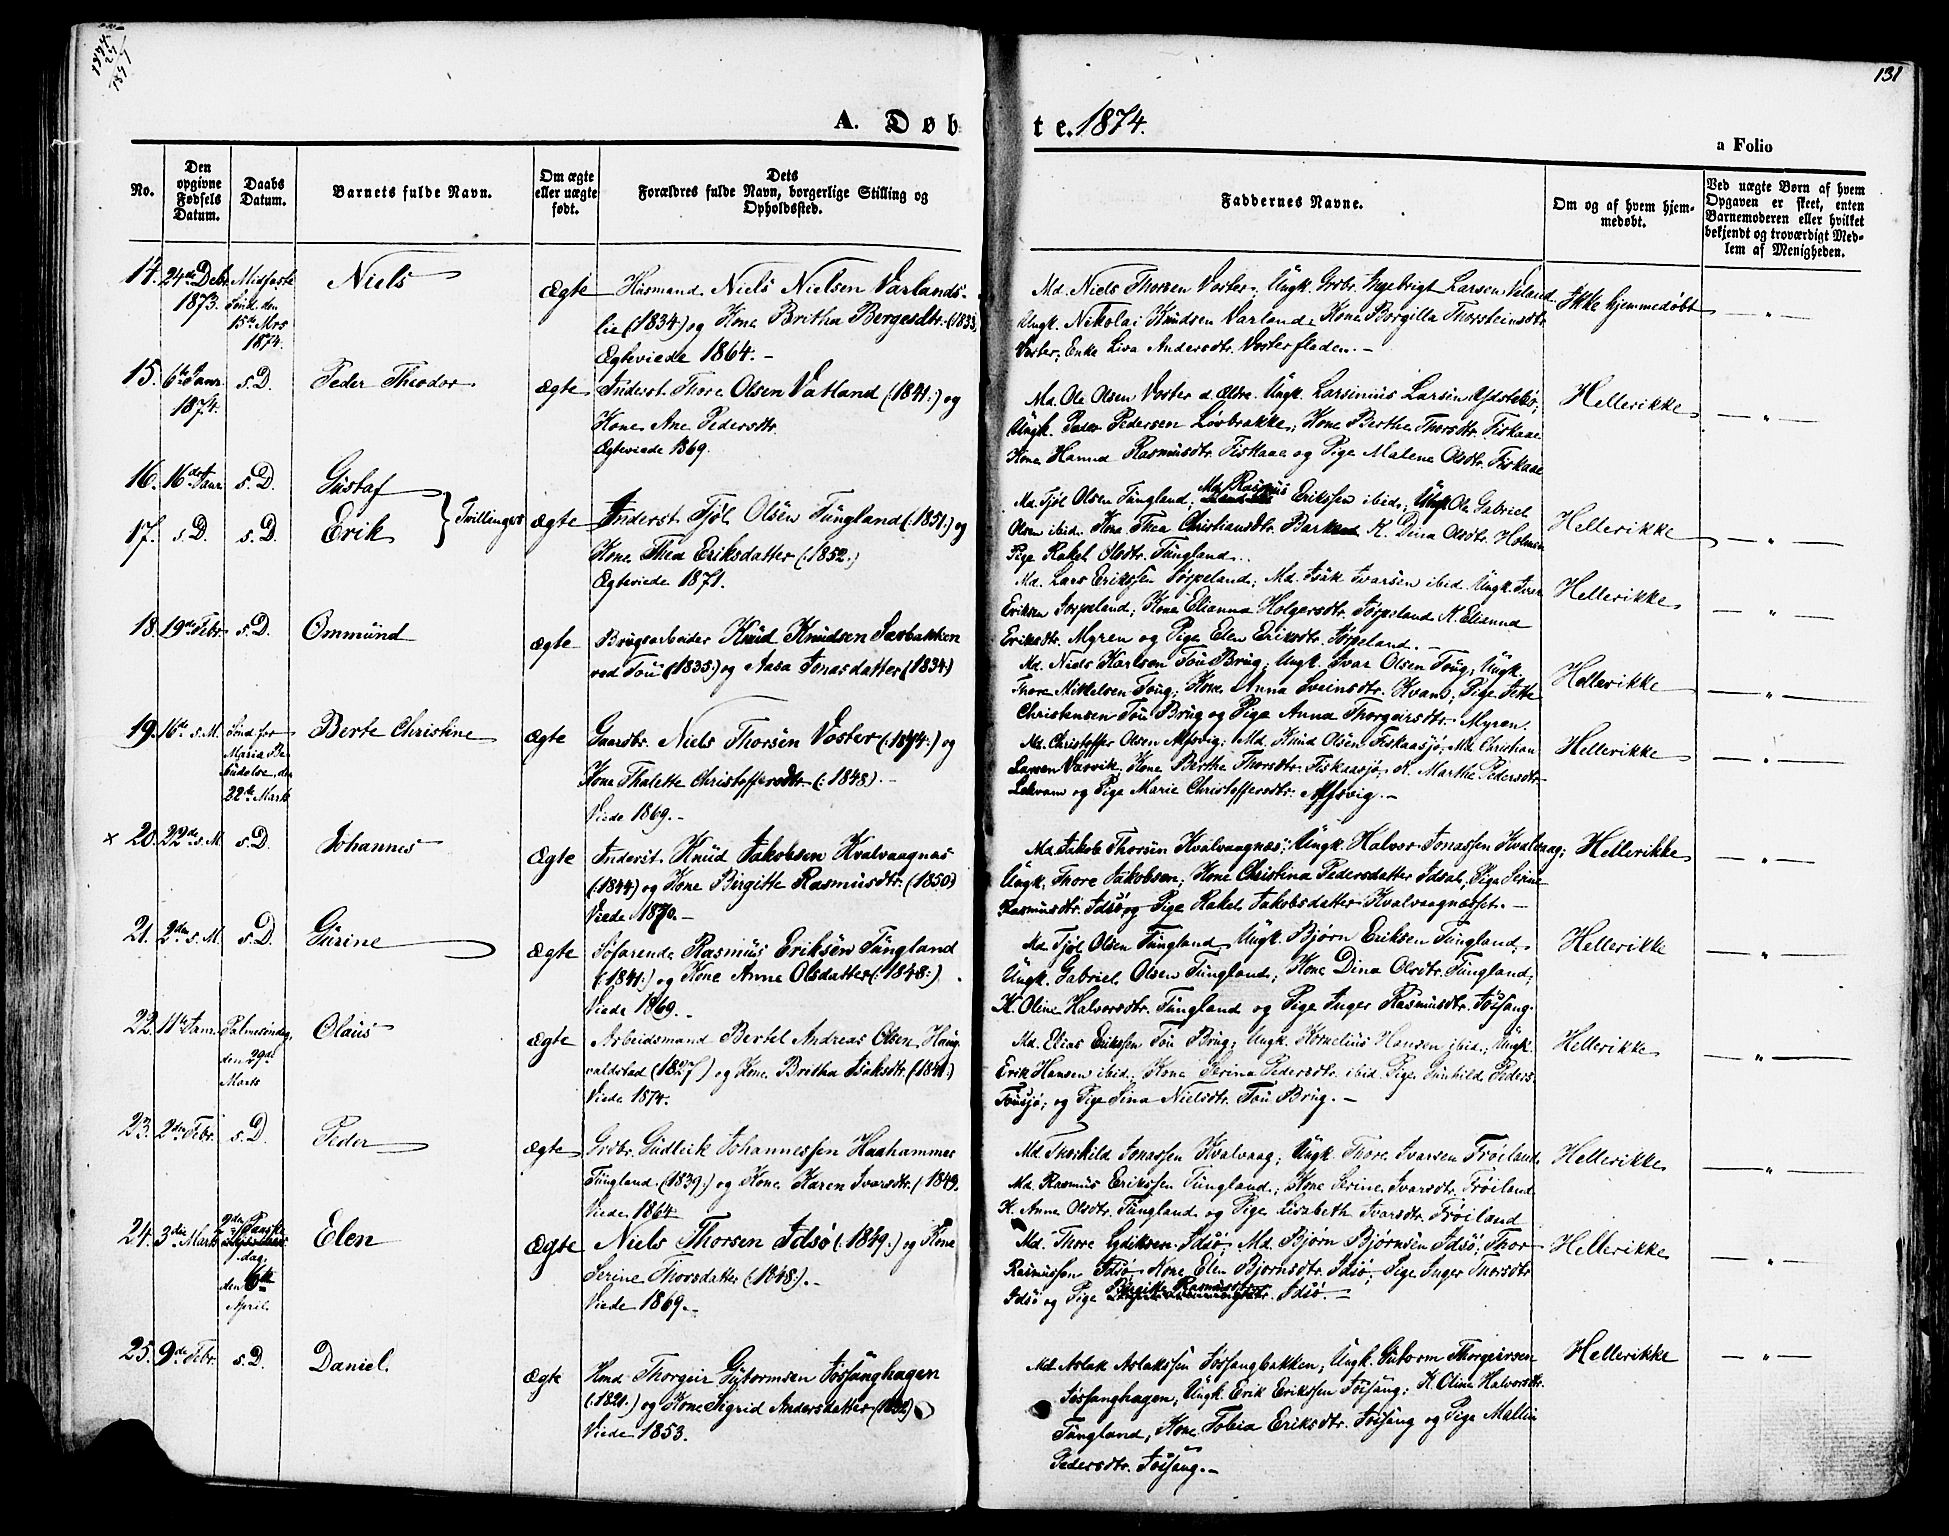 131
A. Døbte. 1874.
a Folio
No.
Den opgivne Fødsels Datum.
Daabs Datum.
Barnets fulde Navn.
Om ægte eller uægte født.
Dets Forældres fulde Navn, borgerlige Stilling og Opholdssted.
Faddernes Navne.
Om og af hvem hjemmedøbt.
Ved uægte Børn af hvem Opgaven er skeet, enten Barnemoderen eller hvilket bekjendt og troværdigt Medlem af Menigheden.
14. 24de Decbr 1873. Midfaste Sønd. den 15de Mrs 1874. Niels Ægte
Husmand Niels Nielsen Varlands-
lie (1834) og Kone Britha Bergesdtr.
Ægteviede 1864. -
Md. Niels Thorsen Voster. Ungk. Grbr. Ingebrigt Larsen Veland
Ungk. Nikolai Knudsen Varland, Kone Borgilla Thorsteinsdtr
Voster, Enke Liva Andersdtr. Vosterfladen. -
Ikke hjemmedøbt — " —
15. 6te Janr. 1874. s. D. Peder Theodor Ægte
Inderst Thore Olsen Vatland (1841:) og
Kone Ane Pedersdtr.
Ægteviede 1869.
Md. Ole Olsen Voster d. Ældre. Ungk. Larsinius Larsen
Ungk. Peder Pedersen Løvbrække; Kone Berthe Thorsdtr. Fiskaae
Kone Hanna Rasmusdtr. Fiskaae og Pige Malene Olsdtr. Fiskaae
Hellerikke — " —
16. 16de Janr. s. D. Gustaf
17. s. D. s. D. Erik } Tvillinger Ægte
Inderst Tjøl Olsen Tungland (:1851:) og
Kone Thea Eriksdatter (:1852.)
Ægteviede 1871.
Md. Tjøl Olsen Tungland; Md. Rasmus Eriksen ibid.; Ungk Ole Gabriel
Olsen ibid. Kone Thea Christiansdtr. K. Dina Olsdtr. Holmen
Pige Rakel Olsdtr. Tungland.
Hellerikke — " —
Md. Lars Erikssen Jørpeland; Md. Isak Ivarsen ibid. Ungk. Ivar
Eriksen Jørpeland; Kone Elianna Holgersdtr. Jørpeland K. Elianna
Eriksdtr. Myren og Pige Elen Eriksdtr. Jørpeland. -
Hellerikke — " —
18. 19de Febr. s. D. Ommund Ægte
Brugsarbeider Knud Knudsen Sørbakken
ved Tou (1835:) og Aasa Jonasdatter (1834)
Md. Niels Karlsen Tou Brug; Ungk. Ivar Olsen Toug; Ungk.
Thore Mikkelsen Toug; Kone Anna Sveinsdtr. Kvam; Pige Jette
Christensen Tou Brug og Pige Anna Thorgeirsdtr. Myren.
Hellerikke — " —
19. 16de s. M. Sønd. før Maria Bebudelse, den 22de Marts Berte Christine Ægte
Gaardbr. Niels Thorsen Voster (:1844:) og
Kone Thalette Christoffersdtr. (:1848). -
Viede 1869. -
Md. Christoffer Olsen Alsvig; Md. Knud Olsen Fiskaasjø, Md. Christian
Larsen Varvik, Kone Berthe Thorsdtr. Fiskaasjø, K. Marthe Pedersdtr.
Lekvam og Pige Marie Christoffersdtr. Alsvig. -
Hellerikke — " —
× 20. 22de s. M. s. D. Johannes Ægte
Inderst Knud Jakobsen Kvalvaagnæs
(1844) og Kone Birgitte Rasmusdtr. (1850)
Viede 1870. -
Md. Jakob Thorsen Kvalvaagnæs; Ungk. Halvor Jonassen Kvalvaag;
Ungk. Thore Jakobsen; Kone Christina Pedersdatter Idsal, Pige Serine
Rasmusdtr. Idsø og Pige Rakel Jakobsdatter Kvalvaagnæsset. -
Hellerikke — " —
21. 2den s. M. s. D. Gurine Ægte
Søfarende Rasmus Eriksen Tungland
(:1841:) og Kone Anne Olsdatter (:1848:)
Viede 1869. -
Md. Tjøl Olsen Tungland, Ungk. Bjørn Eriksen Tungland,
Ungk. Gabriel Olsen Tungland; Kone Dina Olsdtr. Tungland;
K. Oline Halvorsdtr. Tungland og Pige Inger Rasmusdtr. Jøssang.
Hellerikke — " —
22. 11te Janr. Palmesøndag den 29de Marts Olaus Ægte
Arbeidsmand Bertel Andreas Olsen Haug-
valdstad (1827) og Kone Britha Isaksdtr. (1841)
Viede 1874.
Md. Elias Erikssen Tou Brug; Ungk. Kornelius Hansen ibid.; Ungk.
Erik Hansen ibid. Kone Serina Pedersdtr. ibid. Pige Gunhild Peders.
Tousjø; og Pige Sina Nielsdtr. Tou Brug. -
Hellerikke — " —
23. 2den Febr. s. D. Peder Ægte
Grdbr. Gudleik Johannessen Haahammer
Tungland (1839:) og Kone Karen Ivarsdtr. (1849.
Viede 1864
Md Thorkild Jonassen Kvalvaag; Ungk. Thore Ivarsen Frøiland
Md. Rasmus Erikssen Tungland; Kone Serine Ivarsdtr. Frøiland
K. Anne Olsdtr. Tungland og Pige Lisabeth Ivarsdtr. Frøiland
Hellerikke — " —
24. 3die Marts 2den Paaskedag den 6te April. Elen Ægte
Niels Thorsen Idsø (:1849:) og Kone
Serine Thorsdatter (1848:). -
Viede 1869. -
Md. Thore Lydiksen Idsø; Md. Bjørn Bjørnsen Idsø; Thor
Rasmussen Idsø, Kone Elen Bjørnsdtr. Idsø; Pige Inger Thorsdtr
Idsø og Pige Birgitte Rasmusdtr. Idsø. -
Hellerikke — " —
25. 9de Febr. s. D. Daniel. Ægte
Hmd Thorgeir Gutormsen Jøssanghagen
(:1821.) og Kone Sigrid Andersdatter
Viede 1853.
Md. Aslak Aslakssen Jøssangbakken, Ungk. Gutorm Thorgeirsen
Jøssanghagen, Ungk. Erik Erikssen Jøssang; K. Oline Halvorsdtr.
Tungland, Kone Tobia Eriksdtr. Jøssang og Pige Mallin
Pedersdtr. Jøssang. -
Hellerikke — " —